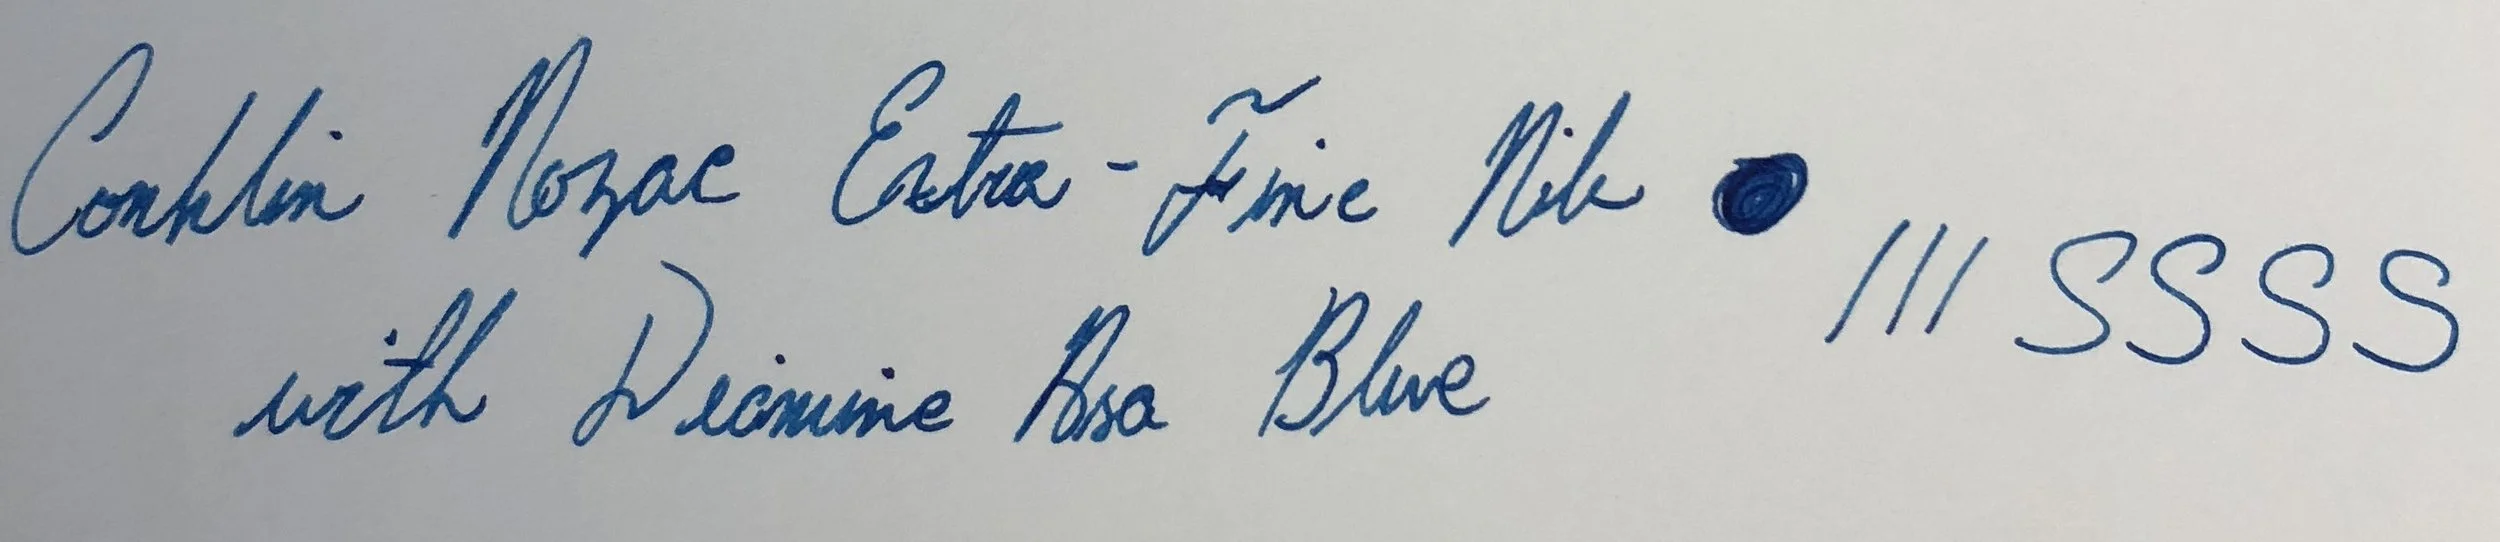 Conklin Nozac Extra-Fine Nib
/// SSSS
with Diamine Asa Blue